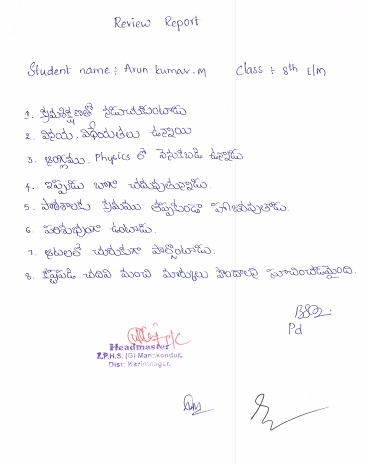 Review Report
Student name : Arun kumar.M Class : 8th E/M
1. క్రమశిక్షణతో నడుచుకుంటాడు.
2. వినయ, విధేయతలు ఉన్నాయి
3. ఆంగ్లము, Physics లో వెనుకబడి ఉన్నాడు
4. ఇప్పుడు బాగా చదువుతున్నాడు.
5. పాఠశాలకు క్రమము తప్పకుండా హాజరవుతాడు.
6. పరిశుభ్రంగా ఉంటాడు.
7. ఆటలలో చురుకుగా పాల్గొంటాడు.
8. కష్టపడి చదివి మంచి మార్కులు పొందాలని సూచించడమైనది.
Pd
Headmaster
Z.P.H.S. (G) Manakondur,
Dist: Karimnagar.